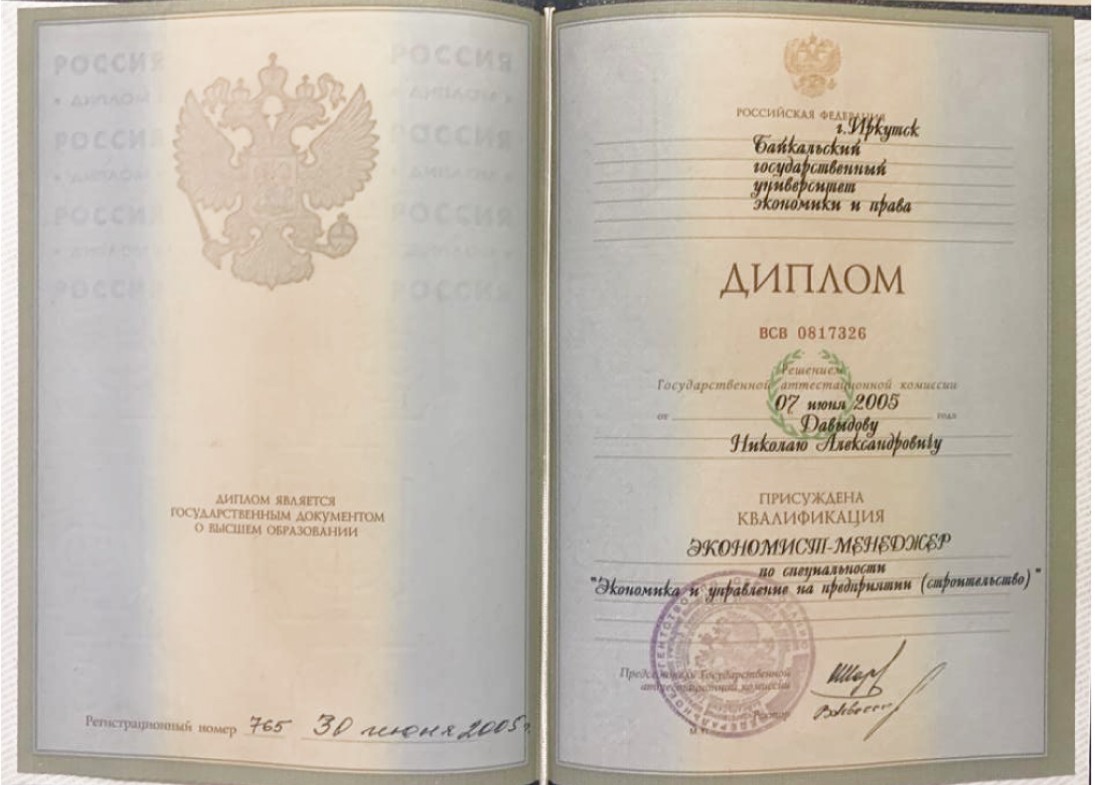 РОССИЯ РОССИЯ
РОССИЯ РОССИЯ
РОССИЯ РОССИЯ
РОССИЯ РОССИЯ
ДИПЛОМ ЯВЛЯЕТСЯ
ГОСУДАРСТВЕННЫМ ДОКУМЕНТОМ
О ВЫСШЕМ ОБРАЗОВАНИИ
Регистрационный номер 765 30 июня 2005 г.
РОССИЙСКАЯ ФЕДЕРАЦИЯ
г.Иркутск
Байкальский
государственный
университет
экономики и права
ДИПЛОМ
ВСВ 0817326
Решением
Государственной аттестационной комиссии
от 07 июня 2005 года
Давыдову
Николаю Александровичу
ПРИСУЖДЕНА
КВАЛИФИКАЦИЯ
ЭКОНОМИСТ-МЕНЕДЖЕР
по специальности
"Экономика и управление на предприятии (строительство)"
Председатель Государственной
аттестационной комиссии
Ректор
М.П.